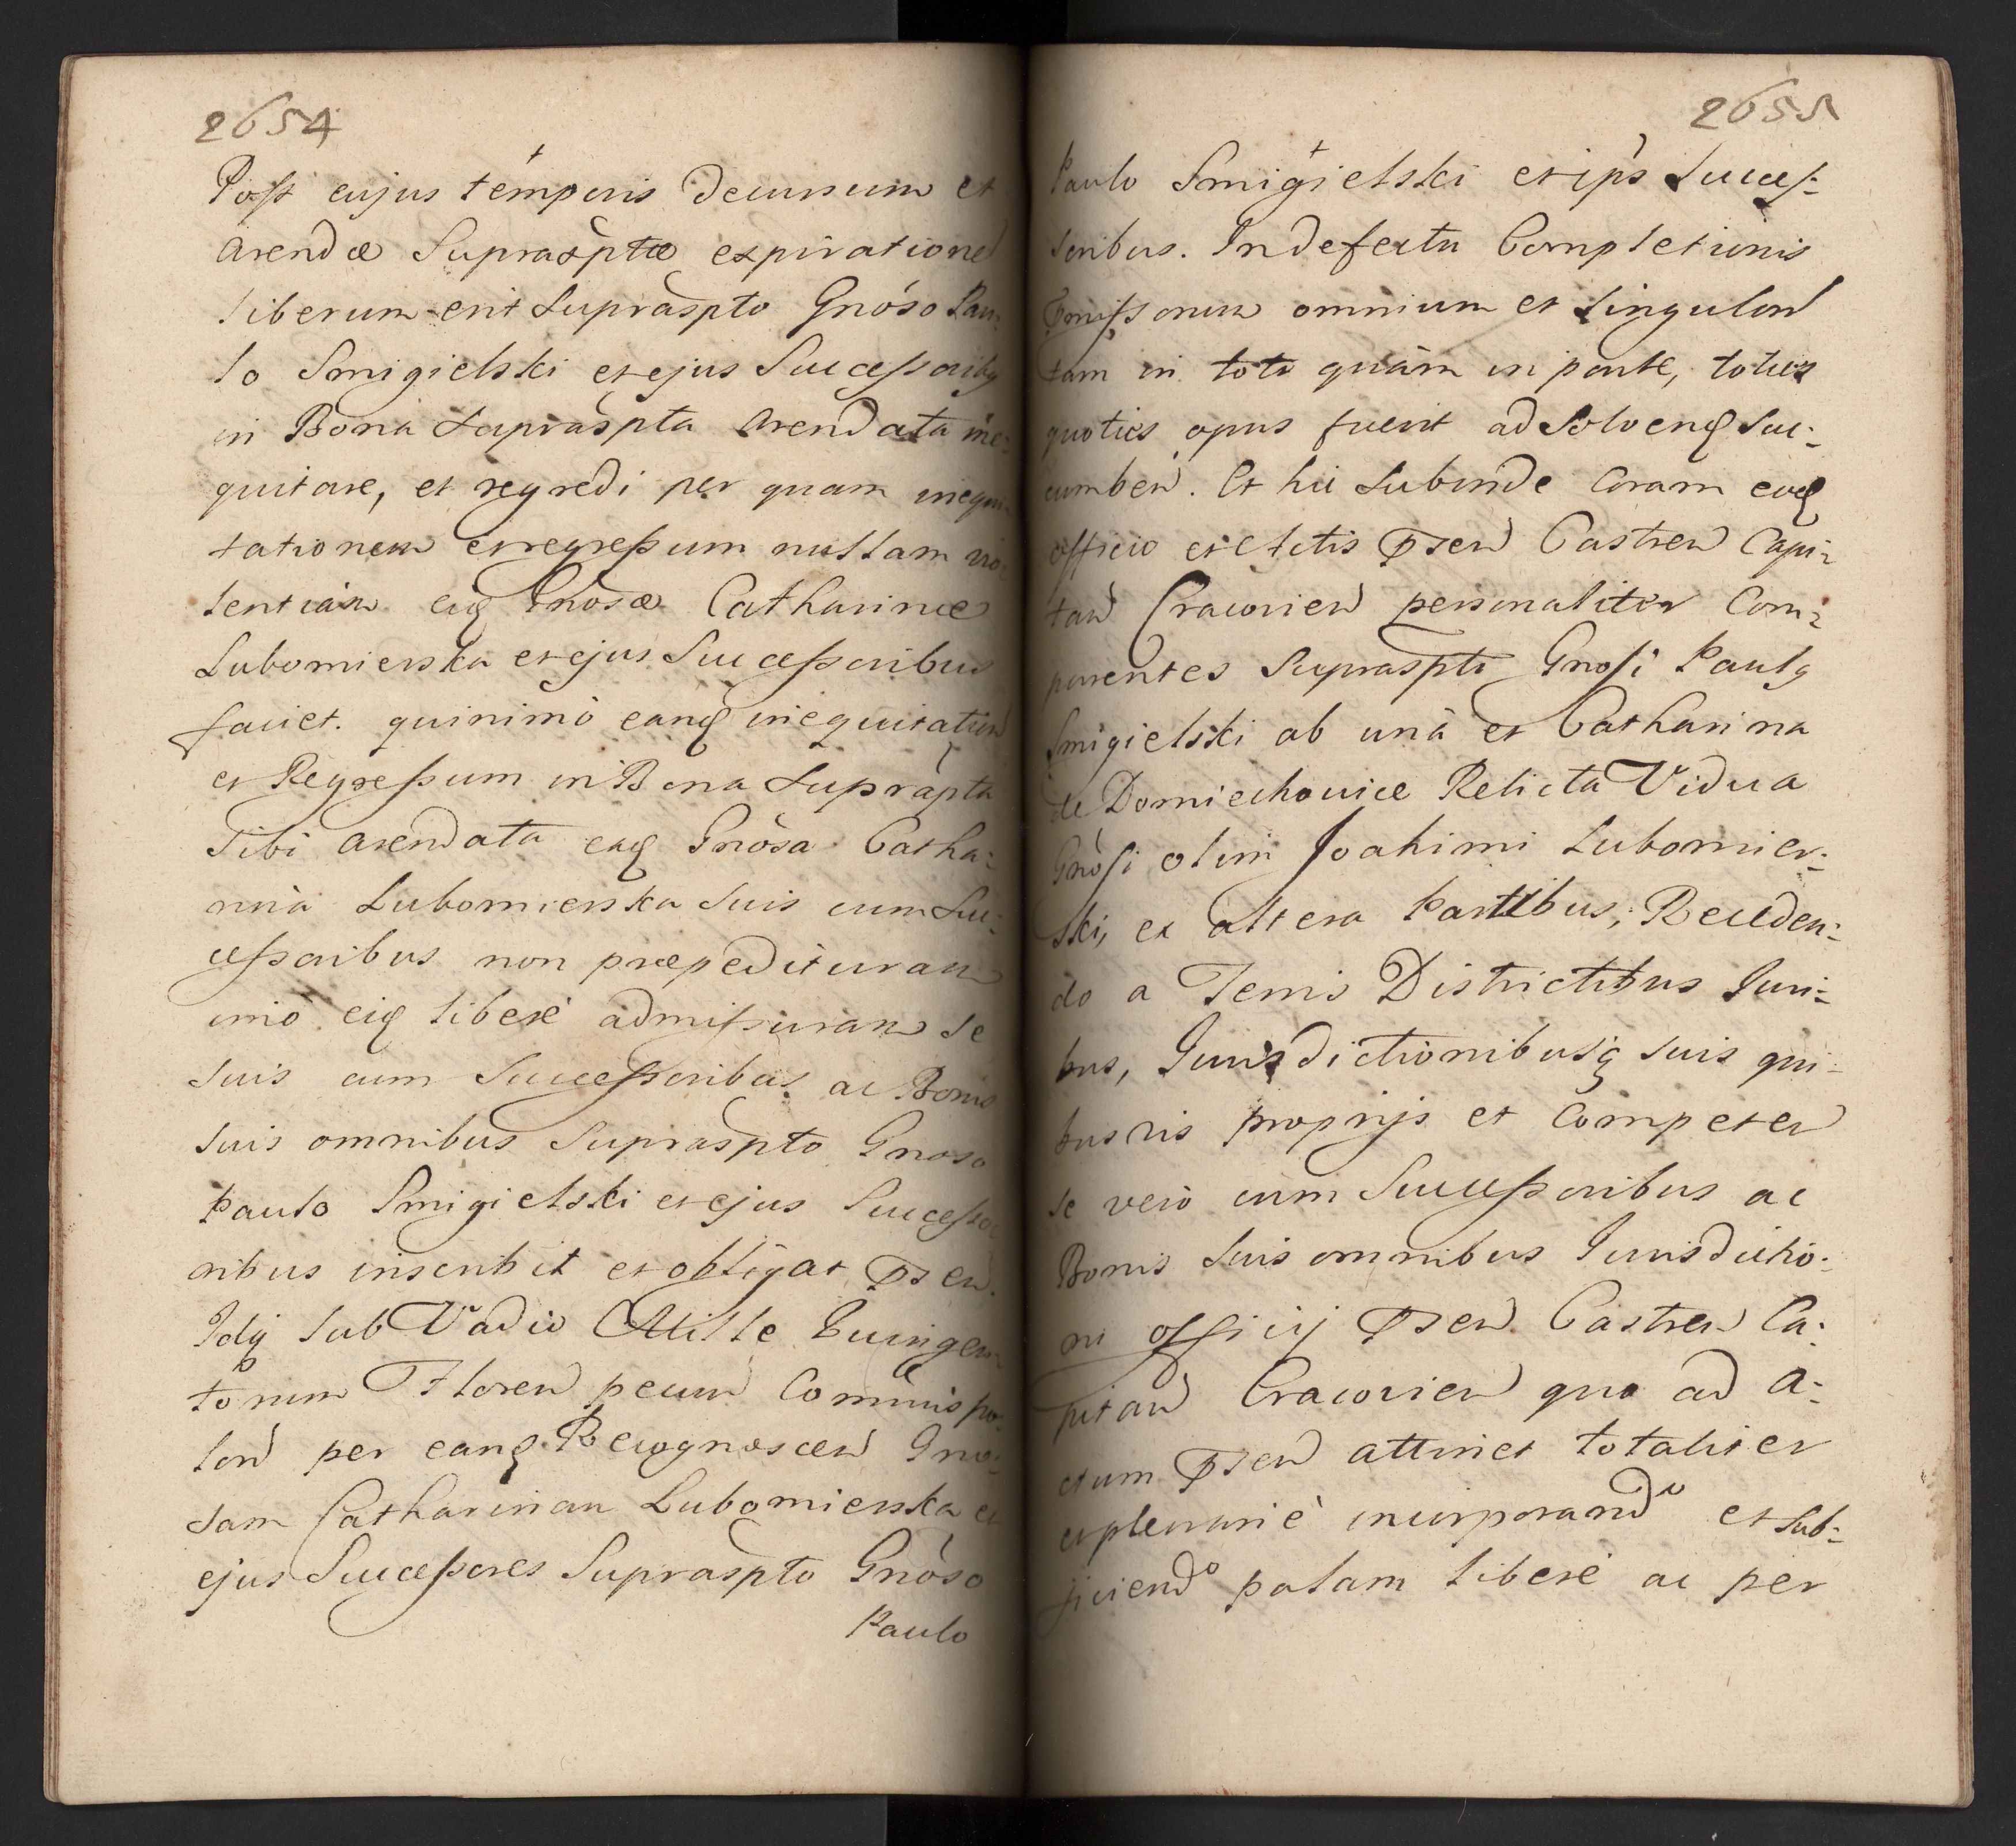 2654
Post cujus temporis decursum et
arendæ Suprasptæ expiratione
liberum erit Supraspto Gnoso Pau-
lo Smigielski et ejus Successoribq
in Bona Supraspta arendata ine-
quitare, et regredi per quam inequi-
tationem et regressum nullam vio-
lentiam eid Gnosæ Catharinæ
Lubomierska et ejus Successoribus
faciet. quinimo eand inequitation
et Regressum in Bona Suprapta
Sibi arendata ead Gnosa Catha-
rina Lubomierska suis cum Suc-
cessoribus non præpedituram
imo eid libere admissuram se
suis cum Successoribus ac Bonis
suis omnibus Supraspto Gnoso
Paulo Smigielski et ejus Successo-
ribus inscribit et obligat pñsen.
Idq sub Vadio Mille Quingen-
torum Floren pecun Communis po-
lon per eand Recognoscen Gno-
sam Catharinam Lubomierska et
ejus Successores Supraspto Gnoso
Paulo
2655
Paulo Smigielski et ips Succes-
soribus. In defectu Completionis
Pmissorum omnium et singulor
tam in toto quàm in parte, toties
quoties opus fuerit ad Solvend suc-
cumben. Et hic Subinde Coram eod
officio et Actis pñsen Castren Capi-
tan Cracovien personaliter Com-
parentes Supraspti Gnosi Paulq
Smigielski ab unà et Catharina
de Domiechowice Relicta Vidua
Gnosi olim Joahimi Lubomier-
ski, ex altera Partibus; Receden-
do a Terris Districtibus Juri-
bus, Jurisdictionibusq suis qui-
busvis proprijs et Competen
se vero cum Successoribus ac
Bonis suis omnibus Jurisdictio-
ni officij pñsen Castren Ca-
pitan Cracovien quo ad A-
ctum pñsen attinet totaliter
et plenarie incorporando et sub-
jiciendo palam libere ac per